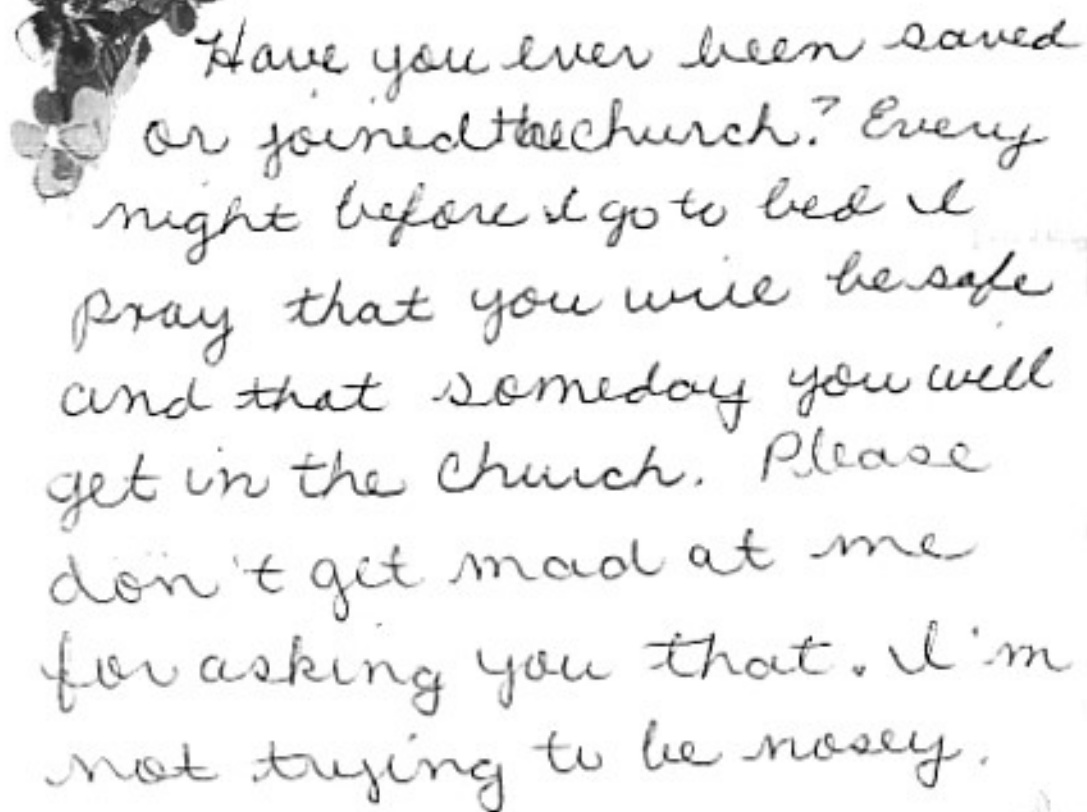 Have you ever been saved
or joined the church? Every
night before I go to bed I
pray that you will be safe
and that someday you will
get in the church. Please
don't get mad at me
for asking you that. I'm
not trying to be nosey.